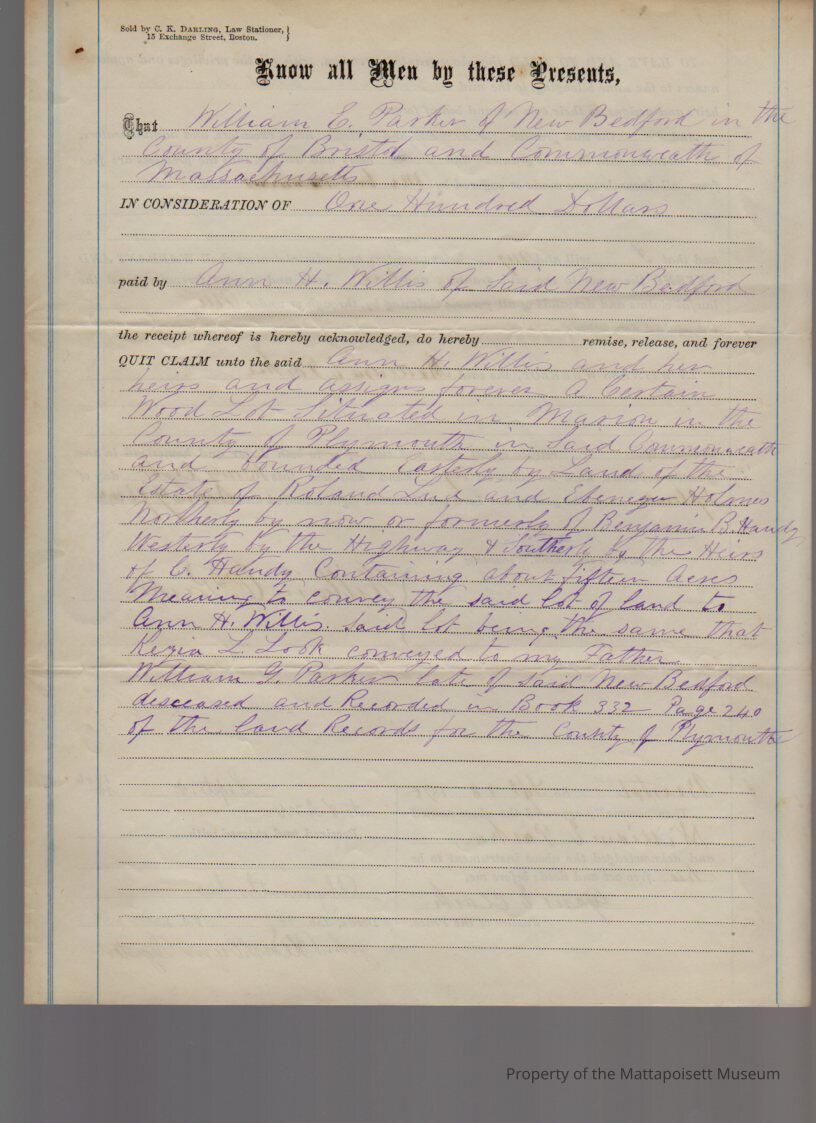 Sold by C. K. DARLING, Law Stationer, }
15 Exchange Street, Boston. }
Know all Men by these Presents,
That William E. Parker of New Bedford in the
County of Bristol and Commonweath of
Massachusetts
IN CONSIDERATION OF One Hundred Dollars
paid by Ann H. Willis of Said New Bedford
the receipt whereof is hereby acknowledged, do hereby remise, release, and forever
QUIT CLAIM unto the said Ann H. Willis and her
heirs and assigns forever A Certain
Wood Lot Situated in Marion in the
County of Plymouth in Said Commonweath
and bounded Easterly by Land of the
Estate of Roland and Ebenezer Holmes
Northerly by now or formerly of Benjamin B. Handy
Westerly by the Highway & Southerly by the Heirs
of C. Handy Containing about fifteen Acres
Meaning to convey the said lot of land to
Ann H. Willis. Said lot being the same that
Kezia L. Look conveyed to my Father
William G. Parker late of Said New Bedford
desceased and Recorded in Book 332 Page 240
of the land Records for the County of Plymouth
Property of the Mattapoisett Museum